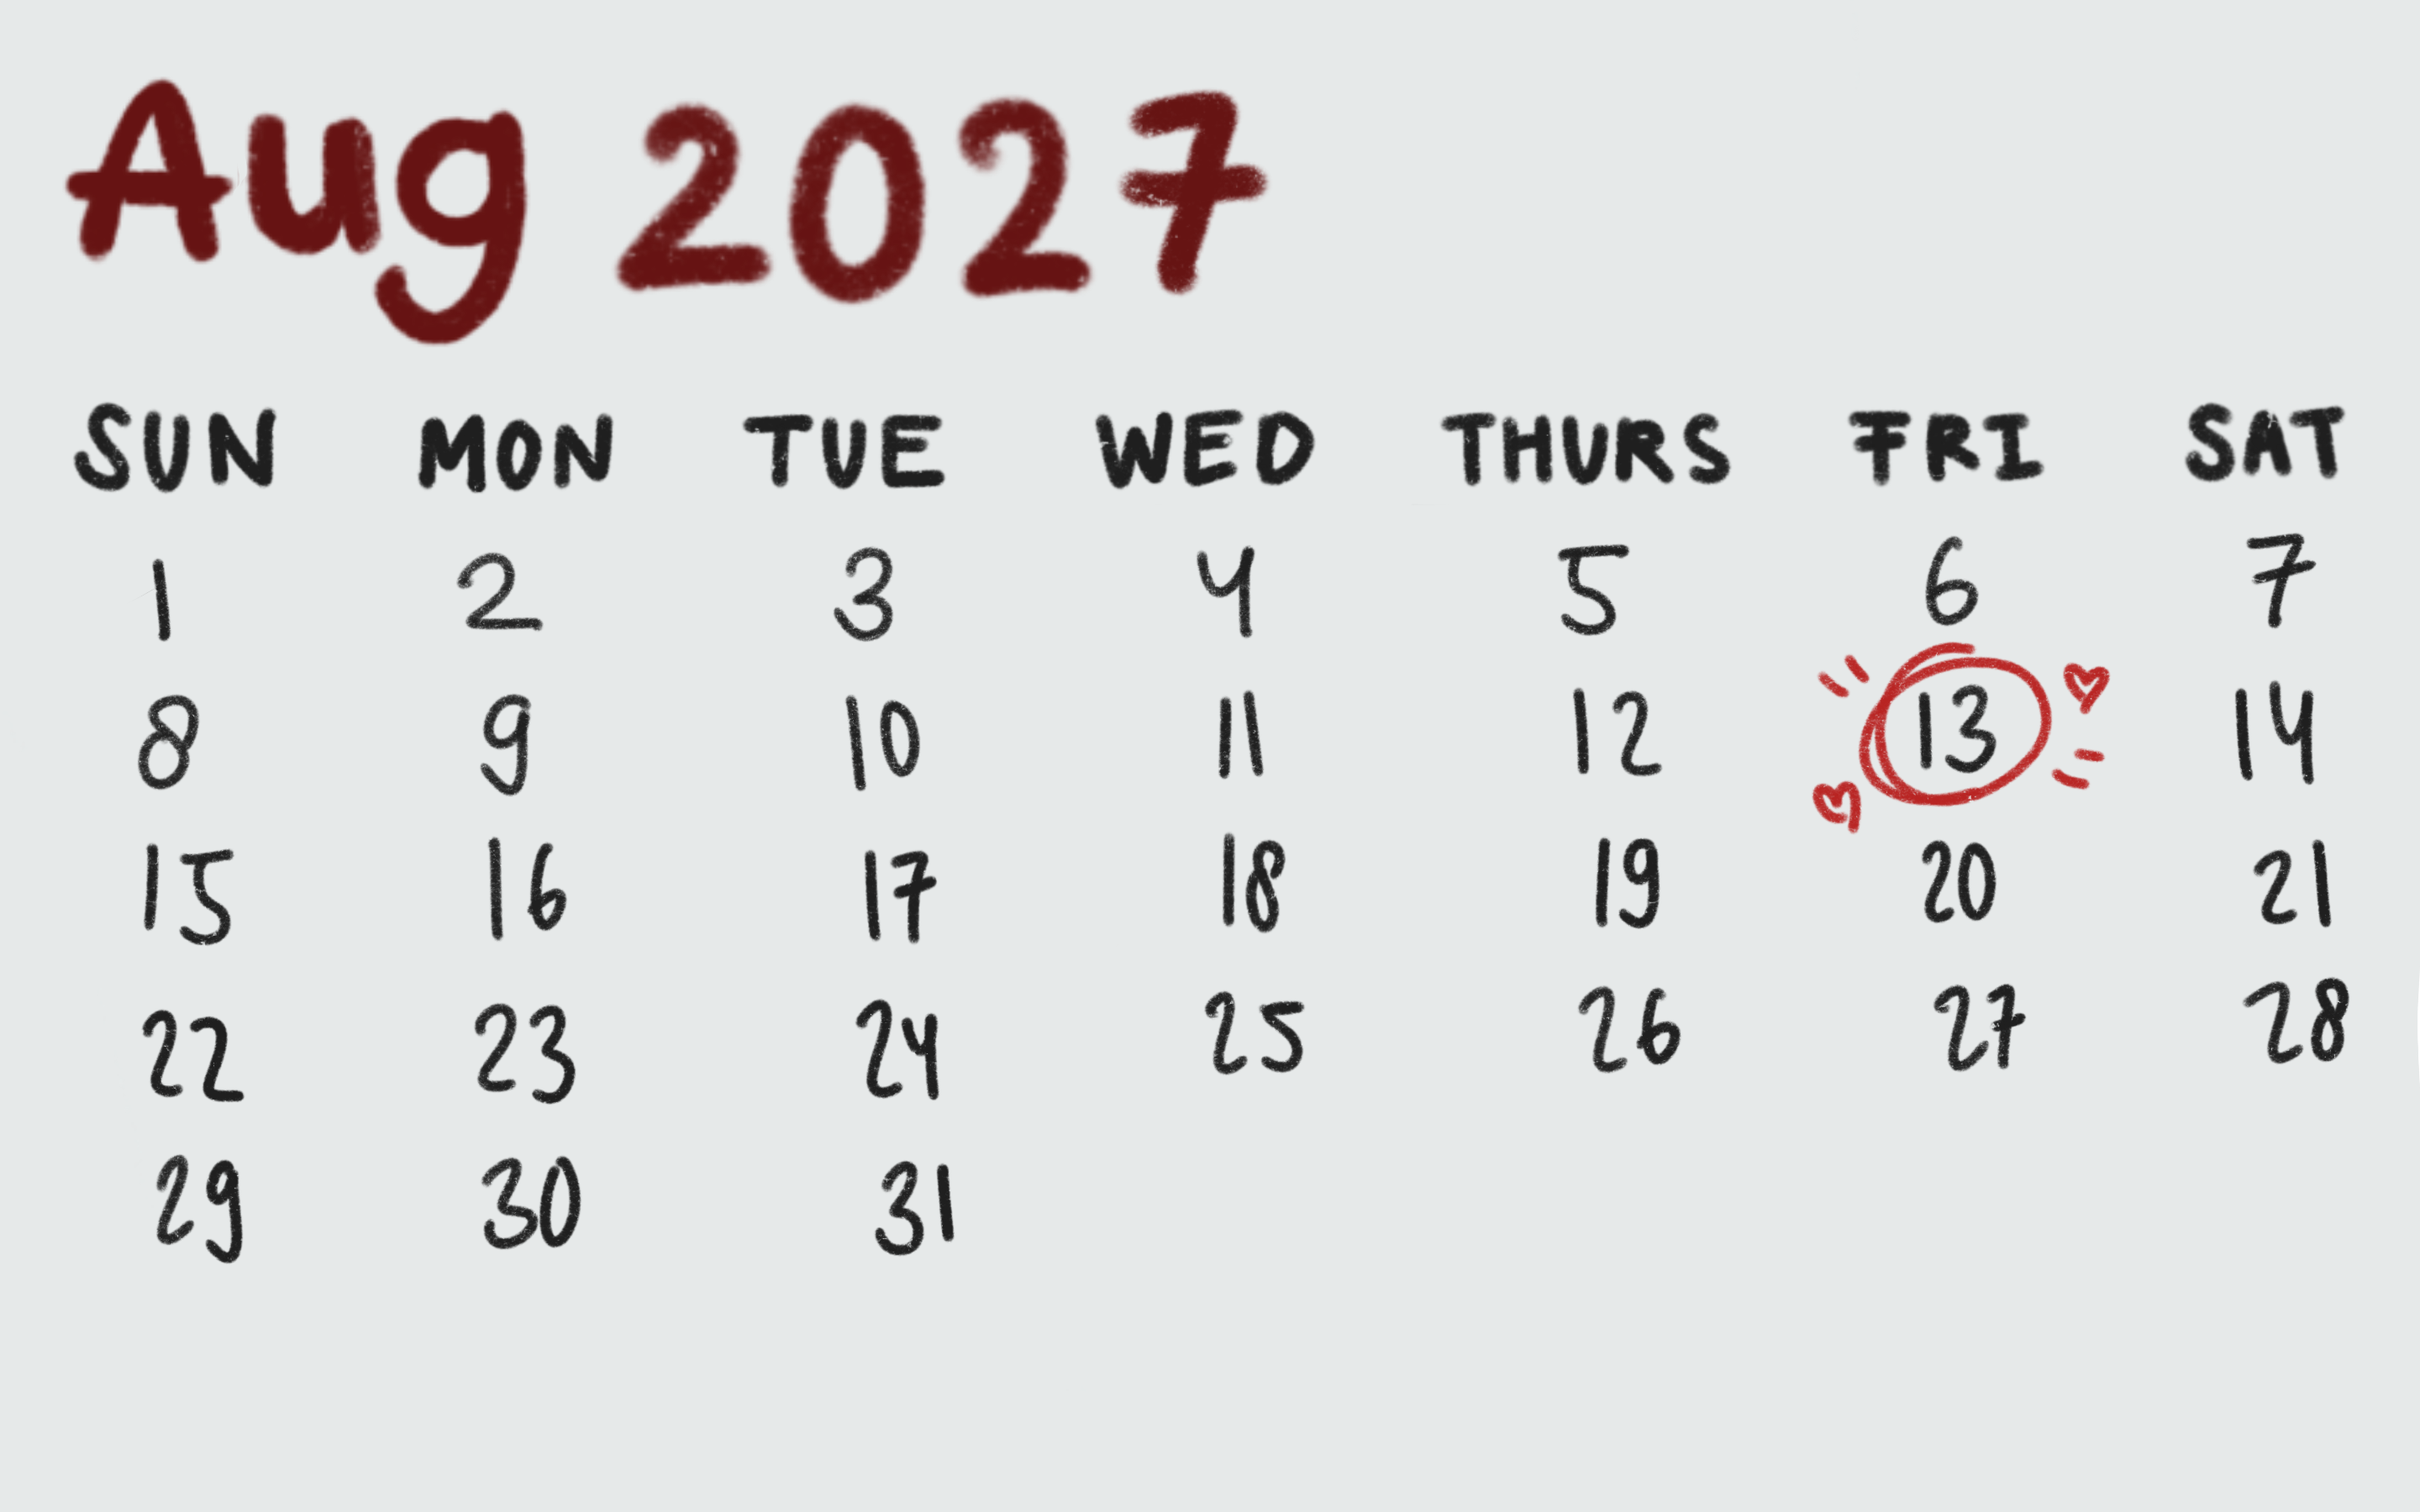 Aug 2027
SUN MON TUE WED THURS FRI SAT
1 2 3 4 5 6 7
8 9 10 11 12 13 14
15 16 17 18 19 20 21
22 23 24 25 26 27 28
29 30 31